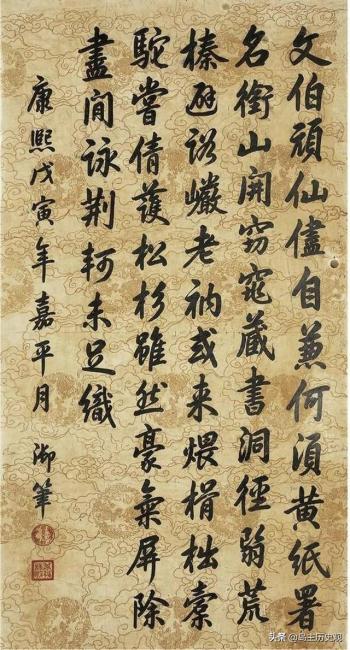 文伯頑仙儘自兼何須黃紙署
名銜山開窈窕藏書洞徑翦荒
榛避詔巖老衲或来煨榾柮橐
駝嘗倩護松杉雖然豪氣屏除
盡間詠荆軻未足織
康熙戊寅年嘉平月 御筆
头条 @岛主历史观